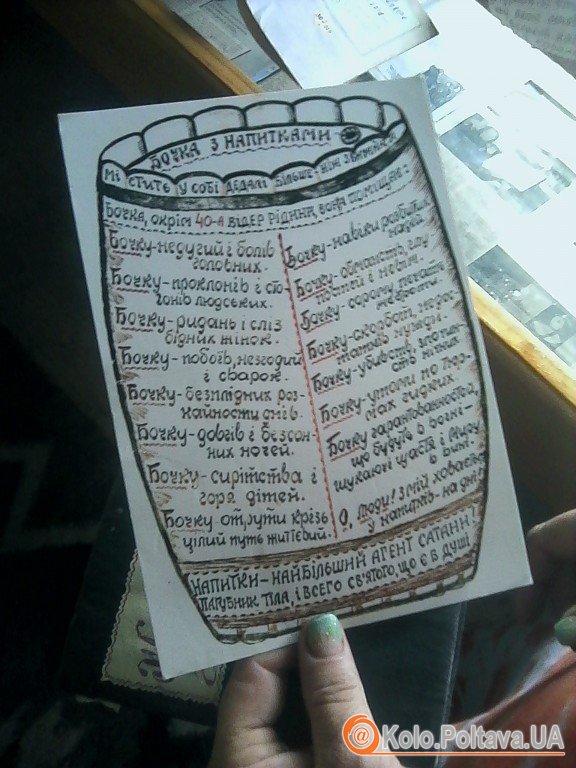 Бочка з напитками
Містить у собі дедалі більше, ніж звичайна
Бочка, окрім 40-а відер рідини, вона поміщає:
Бочку-недугий і болів
головних.
Бочку-проклонів і сто-
гонів людських.
Бочку-ридань і сліз
бідних жінок.
Бочку-побоїв, незгодий
і сварок.
Бочку-безплідних роз-
кайности днів.
Бочку-довгів і безсон-
них ночей.
Бочку-сирітства і
горя дітей.
Бочку отрути крізь
цілий путь життєвий.
Бочку-навіки розбитих
надій.
Бочку-обманств, глу
поттей і невір.
Бочку-сорому печать
Бочку-скорбот, нерос
Бочку-убивств, злочин-
ств нічних
Бочку-утоми по тюр
мах гидких.
Бочку гарантованостей,
що будуть в вогні-
шукаючі щастя і миру
в вині.
О, люди! Змій ховається
у напитків-на дні!
Напитки-найбільший агент сатани!
Пагубник тіла, і всего св'ятого, що є в душі
Kolo.Poltava.UA